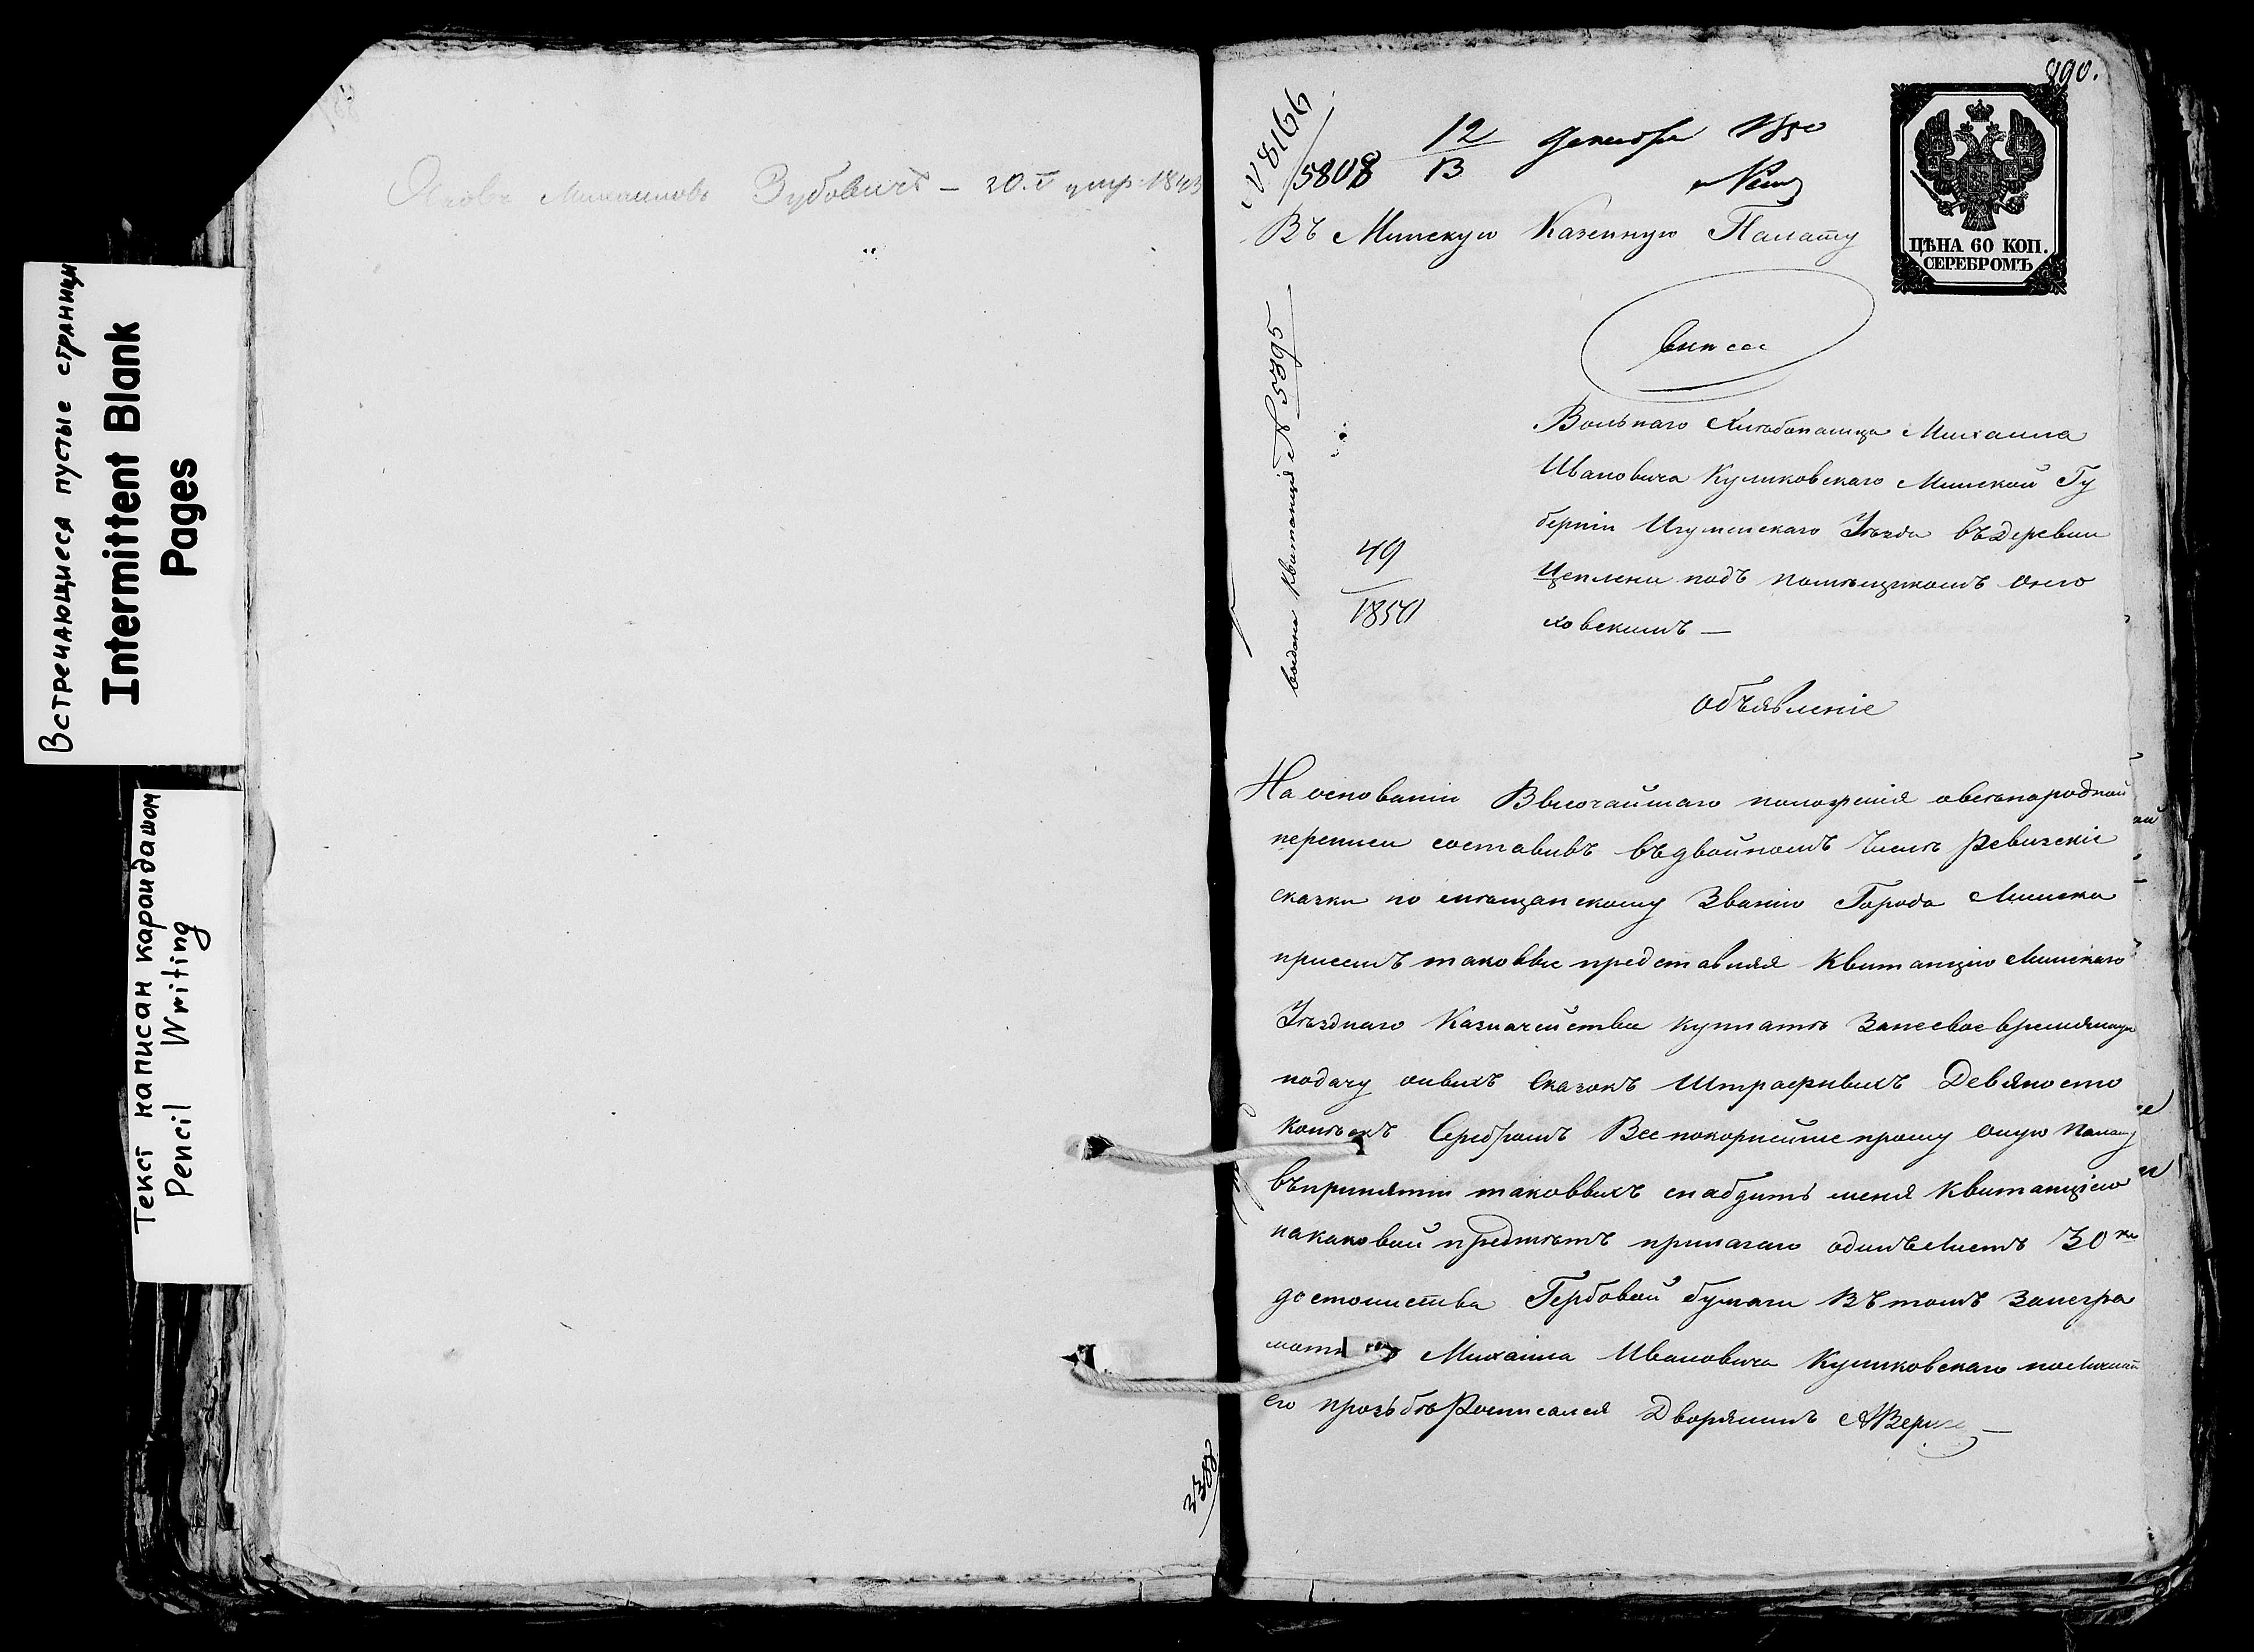 Встречающиеся пустые страницы
Intermittent Blank
Pages
Текст написан карандашом
Pencil Writing
Яковъ Михайловъ Зубовичъ – 20.
890.
№ 8166
5808
12 декабря 1850
13
Въ Минскую Казенную Палату
ЦѢНА 60 КОП.
СЕРЕБРОМЪ
выдана Квитанція № 5395
49
1850
Вольнаго Хлѣбопашца Михаила
Ивановича Куликовскаго Минской Гу
берніи Игуменскаго Уѣзда въ деревни
Цеплени подъ помѣщикомъ
ховскимъ —
объявленіе
На основаніи Высочайшаго положенія овсенародной
переписи составивъ въ двойномъ числѣ Ревизскіе
сказки по мѣщанскому Званію Города Минска
присемъ таковые представляя Квитанцію Минскаго
Уѣзднаго Казначейства купнать Занесвоевременную
подачу оныхъ Сказокъ Штрафныхъ Девяносто
копѣекъ Серебромъ Всепокорнейше прошу оную Палату
въпринятіи таковыхъ снабдить меня Квитанціею
накаковой предмѣтъ прилагаю одинъ листъ 30 ко
достоинства Гербовой бумаги Въ томъ Занегра
Михаила Ивановича Куликовскаго
его прозьбѣ Росписался Дворянинъ
2388